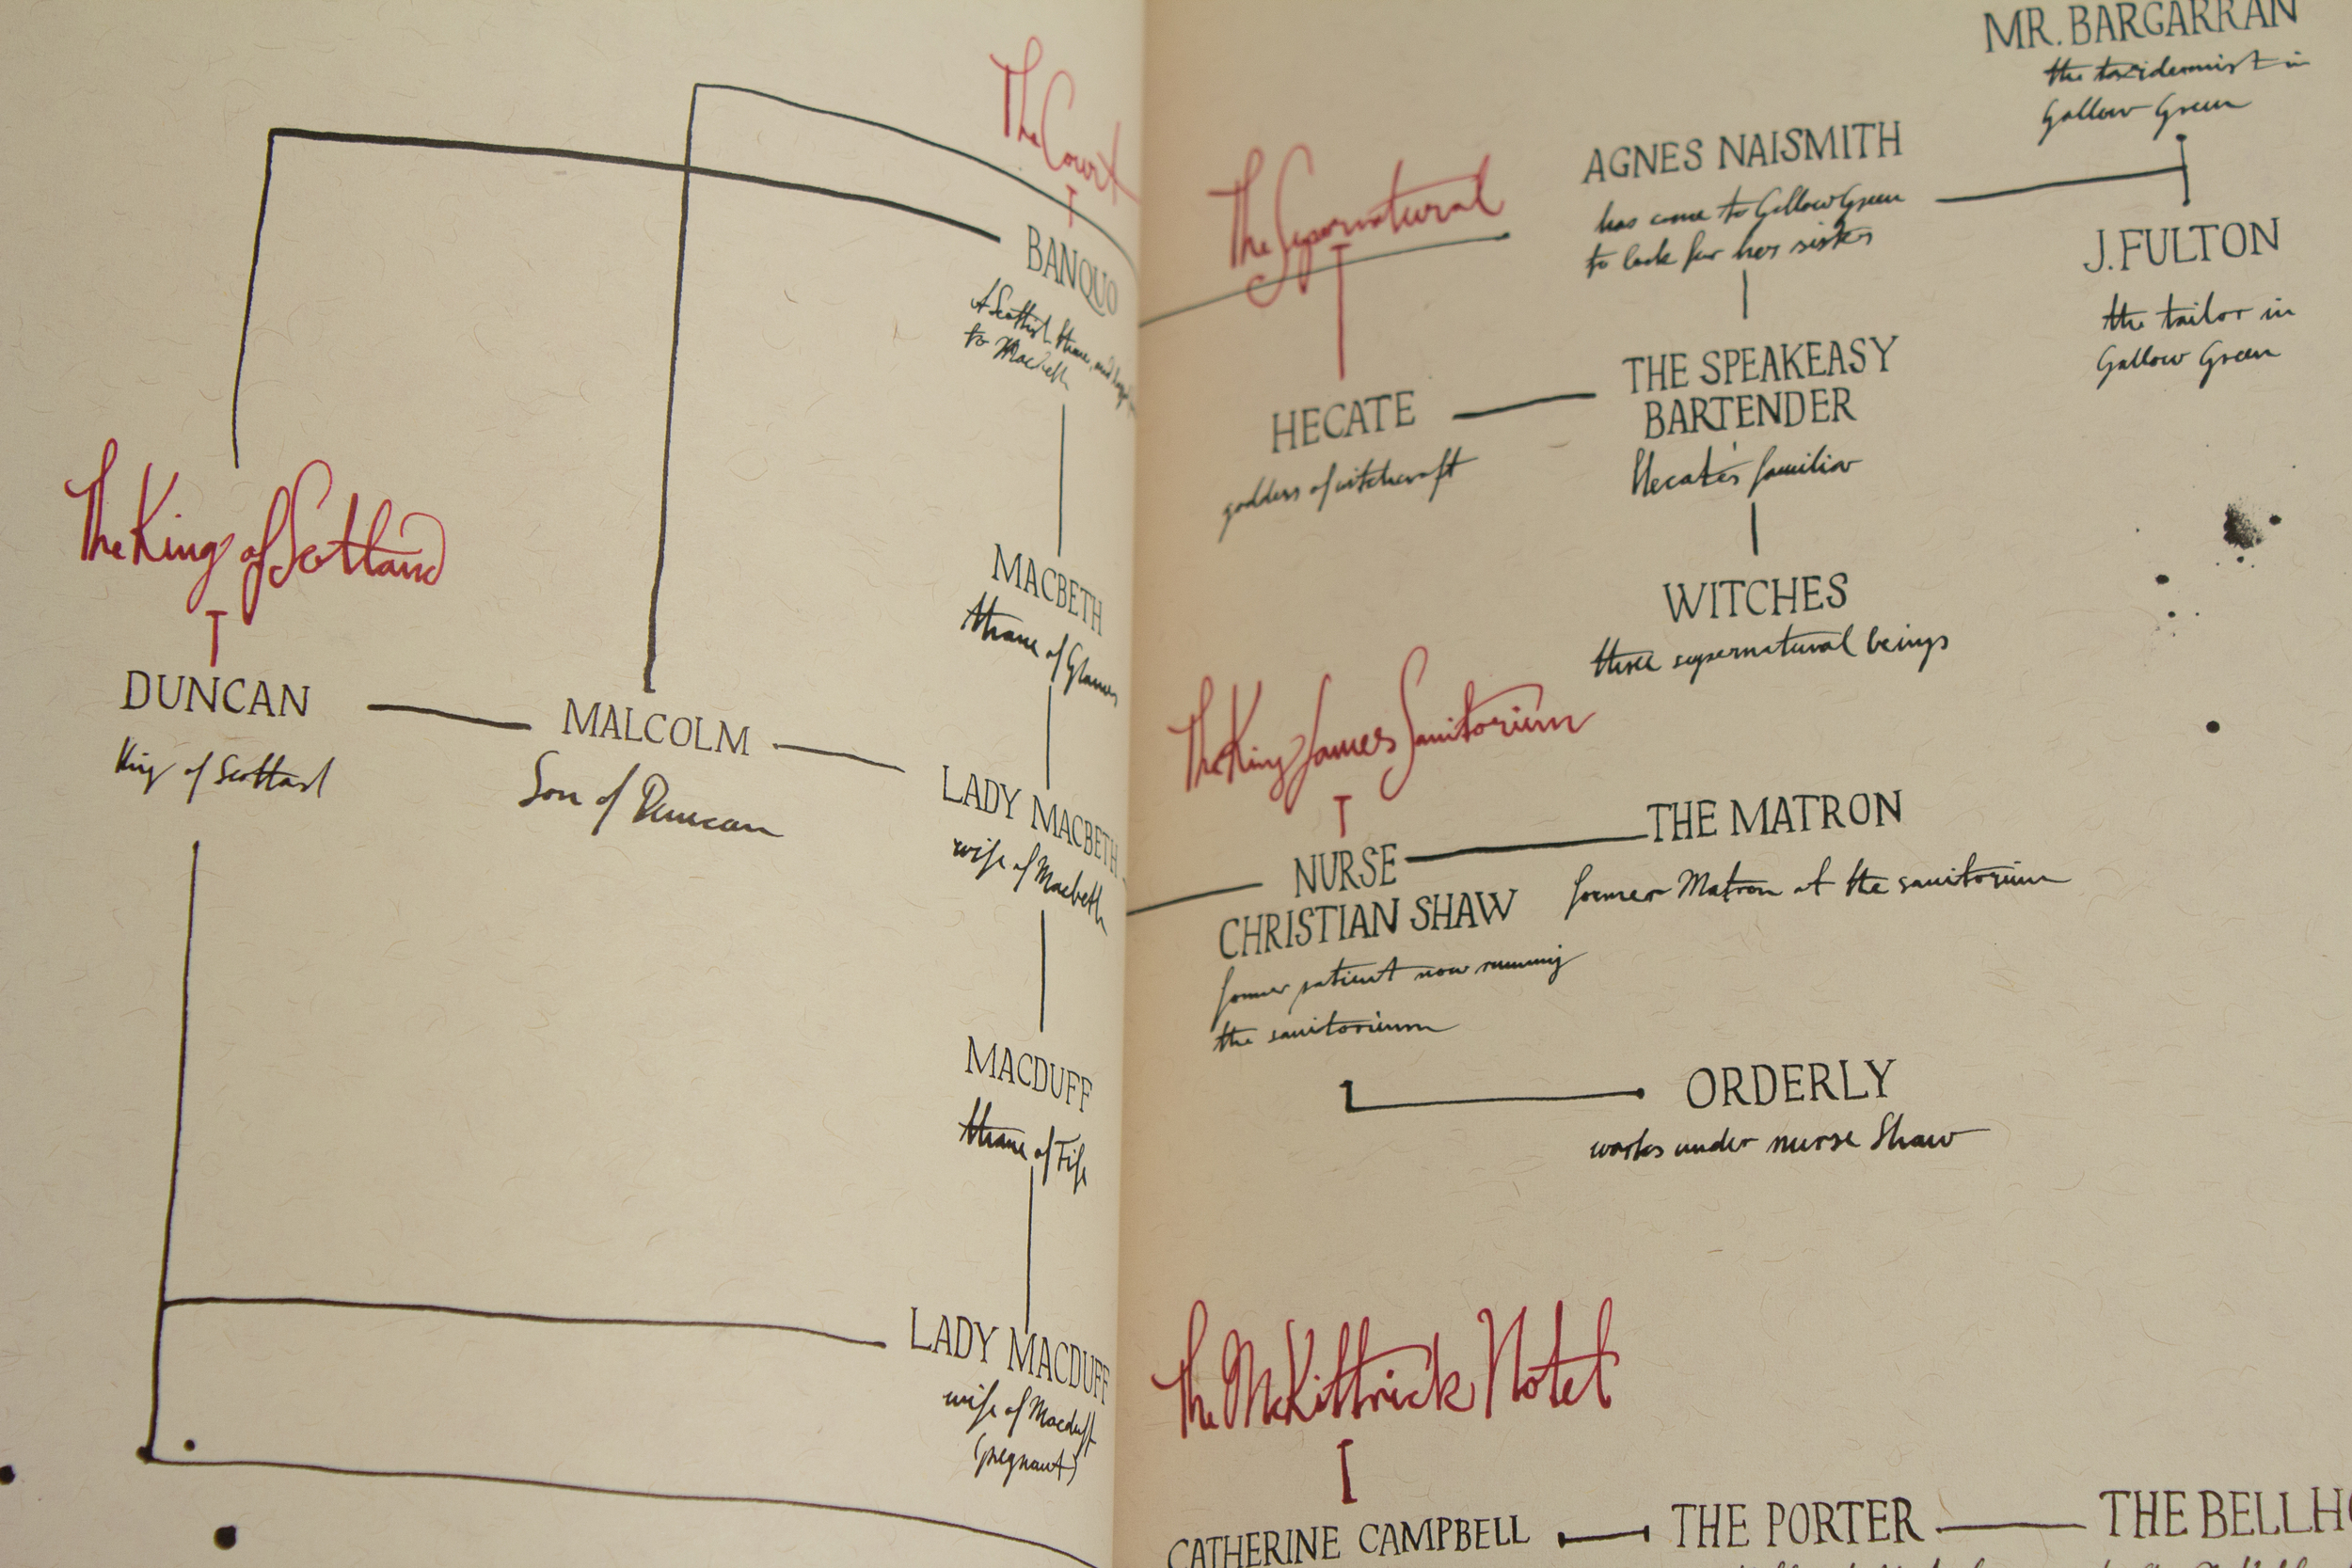 The Court
BANQUO
A Scottish thane, and
to Macbeth
The King of Scotland
DUNCAN
King of Scotland
MALCOLM
Son of Duncan
MACBETH
thane of Glamis
LADY MACBETH
wife of Macbeth
MACDUFF
thane of Fife
LADY MACDUFF
wife of Macduff
(pregnant)
MR. BARGARRAN
the taxidermist in
Gallow Green
The Supernatural
AGNES NAISMITH
has come to Gallow Green
to look for her sister
J. FULTON
the tailor in
Gallow Green
HECATE
goddess of witchcraft
THE SPEAKEASY
BARTENDER
Hecate's familiar
WITCHES
three supernatural beings
The King James Sanitorium
NURSE
CHRISTIAN SHAW
former patient now running
the sanitorium
THE MATRON
former Matron at the sanitorium
ORDERLY
works under nurse Shaw
The McKittrick Hotel
CATHERINE CAMPBELL
THE PORTER
THE BELLHO